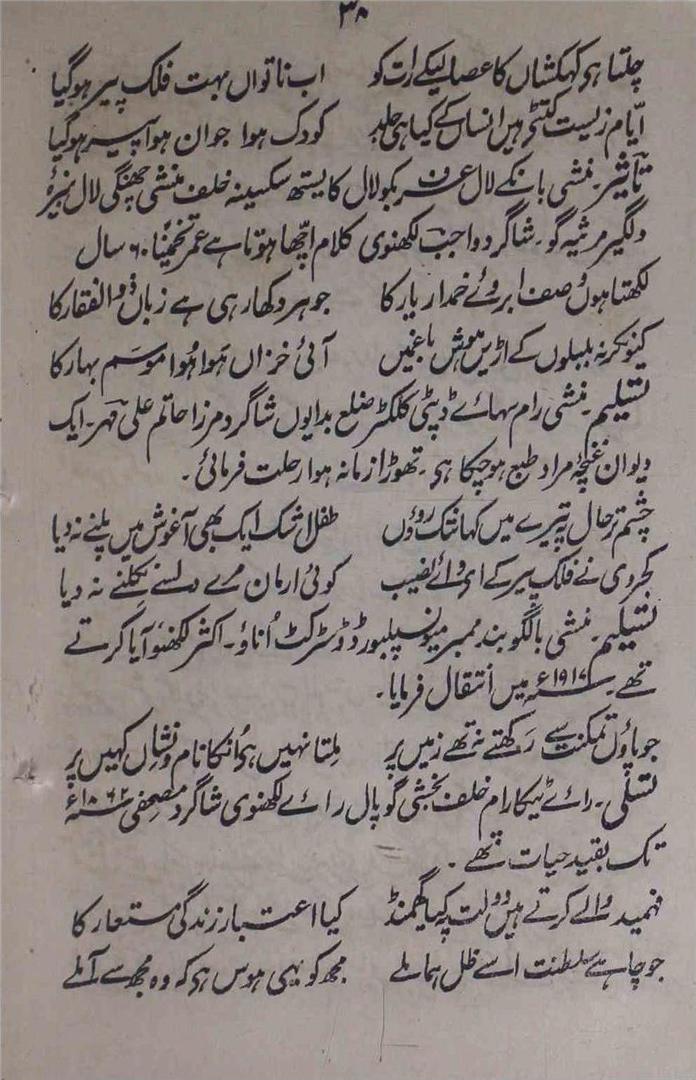 ۳۸
چلتا ہی کہکشاں کا عصا لیکے رات کو اب ناتواں بہت فلک پیر ہوگیا
ایّام زیست کٹتی ہیں انساں کے کیا ہی جلد کودک ہوا جوان ہوا پیر ہوگیا
تاثیر۔ منشی بانکے لال عرف مکولال کایستھ سکسینہ خلف منشی چھنگی لال نبیرۂ
دلگیر مرثیہ گو۔ شاگرد واجب لکھنوی کلام اچّھا ہوتا ہے عمر تخمیناً ۶۰ سال
لکھتا ہوں وصف ابروئے خمدار یار کا جوہر دکھا رہی ہے زباں ذوالفقار کا
کیونکر نہ بلبلوں کے اڑیں ہوش باغمیں آئی خزاں ہوا ہُوا موسم بہار کا
تسلیم۔ منشی رام سہائے ڈپٹی کلکٹر ضلع بدایوں شاگرد مرزا حاتم علی مہر۔ ایک
دیوان غنچۂ مراد طبع ہوچکا ہی۔ تھوڑا زمانہ ہوا رحلت فرمائی۔
چشم تر حال پہ تیرے میں کہانتک روؤں طفل اشک ایک بھی آغوش میں پلنے نہ دیا
کجروی نے فلک پیر کے ای وائے نصیب کوئی ارمان مرے دلسے نکلنے نہ دیا
تسلیم۔ منشی بالگوبند ممبر میونسپلبورڈ وڈسٹرکٹ اُناؤ۔ اکثر لکھنؤ آیا کرتے
تھے۔ ۱۹۱۷ء میں انتقال فرمایا۔
جو پاؤں تمکنت سے رکھتے نہ تھے زمیں پر ملتا نہیں ہی اُنکا نام و نشاں کہیں پر
تسلی۔ رائے ٹیکا رام خلف بخشی گوپال رائے لکھنوی شاگرد مصحفی ۱۸۶۲ء
تک بقید حیات تھے۔
فہمید والے کرتے ہیں دولت پہ کیا گھمنڈ کیا اعتبار زندگی مستعار کا
جو چاہے سلطنت اسے ظل ہما ملے مجھ کو یہی ہوس ہی کہ وہ مجھ سے آملے